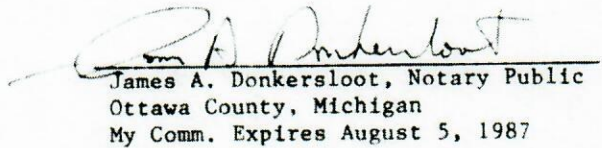 James A. Donkersloot, Notary Public
Ottawa County, Michigan
My Comm. Expires August 5, 1987